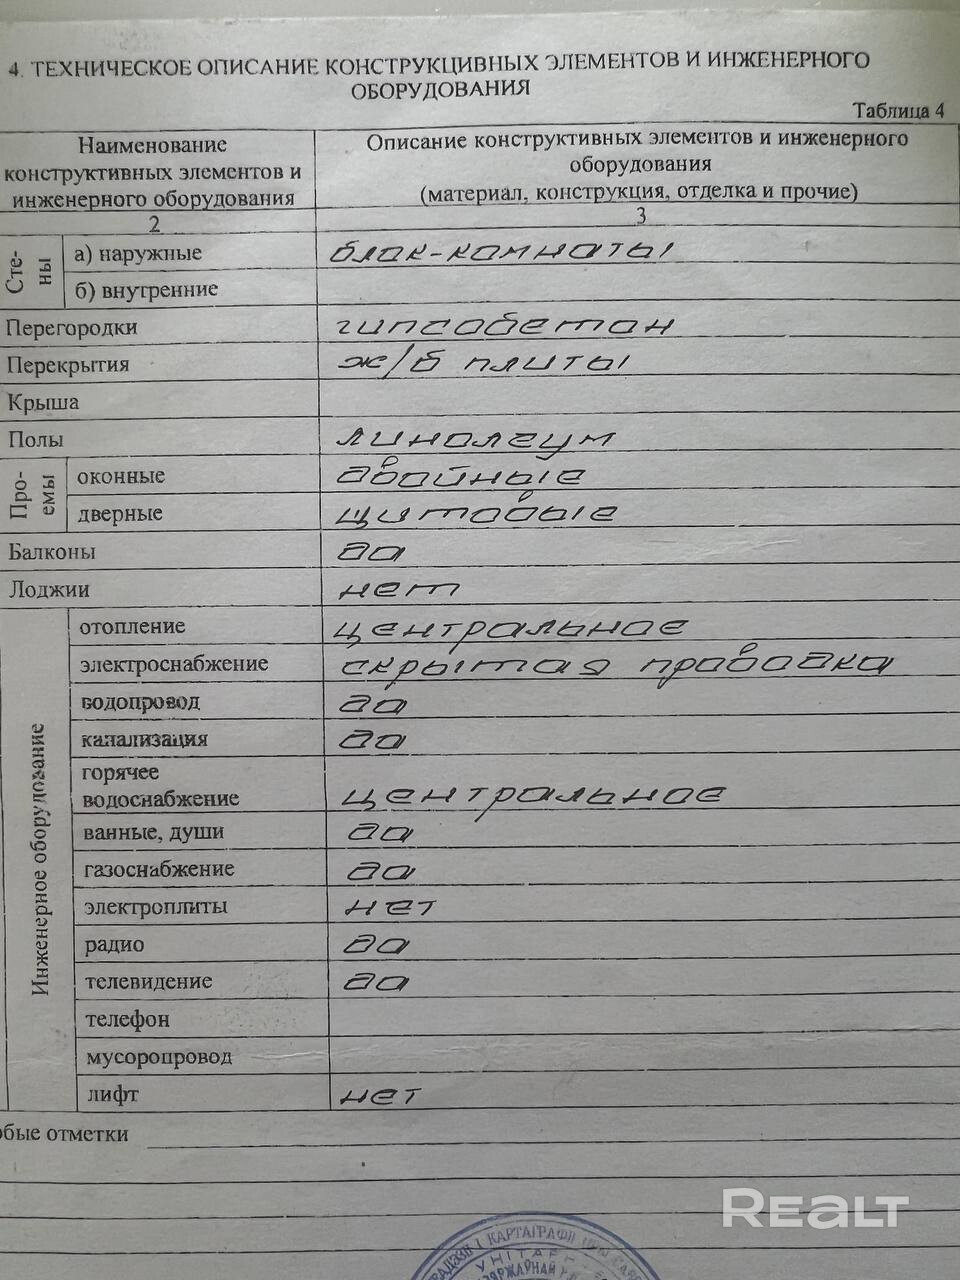 4. ТЕХНИЧЕСКОЕ ОПИСАНИЕ КОНСТРУКЦИВНЫХ ЭЛЕМЕНТОВ И ИНЖЕНЕРНОГО
ОБОРУДОВАНИЯ
Таблица 4
Наименование
конструктивных элементов и
инженерного оборудования
Описание конструктивных элементов и инженерного
оборудования
(материал, конструкция, отделка и прочие)
2 3
Сте-
ны
а) наружные блок-комнаты
б) внутренние
Перегородки гипсобетон
Перекрытия ж/б плиты
Крыша
Полы линолеум
Про-
емы
оконные двойные
дверные щитовые
Балконы да
Лоджии нет
Инженерное оборудование
отопление центральное
электроснабжение скрытая проводка
водопровод да
канализация да
горячее
водоснабжение центральное
ванные, души да
газоснабжение да
электроплиты нет
радио да
телевидение да
телефон
мусоропровод
лифт нет
обые отметки
REALT
І КАРТАГРАФІІ
УНІТАР